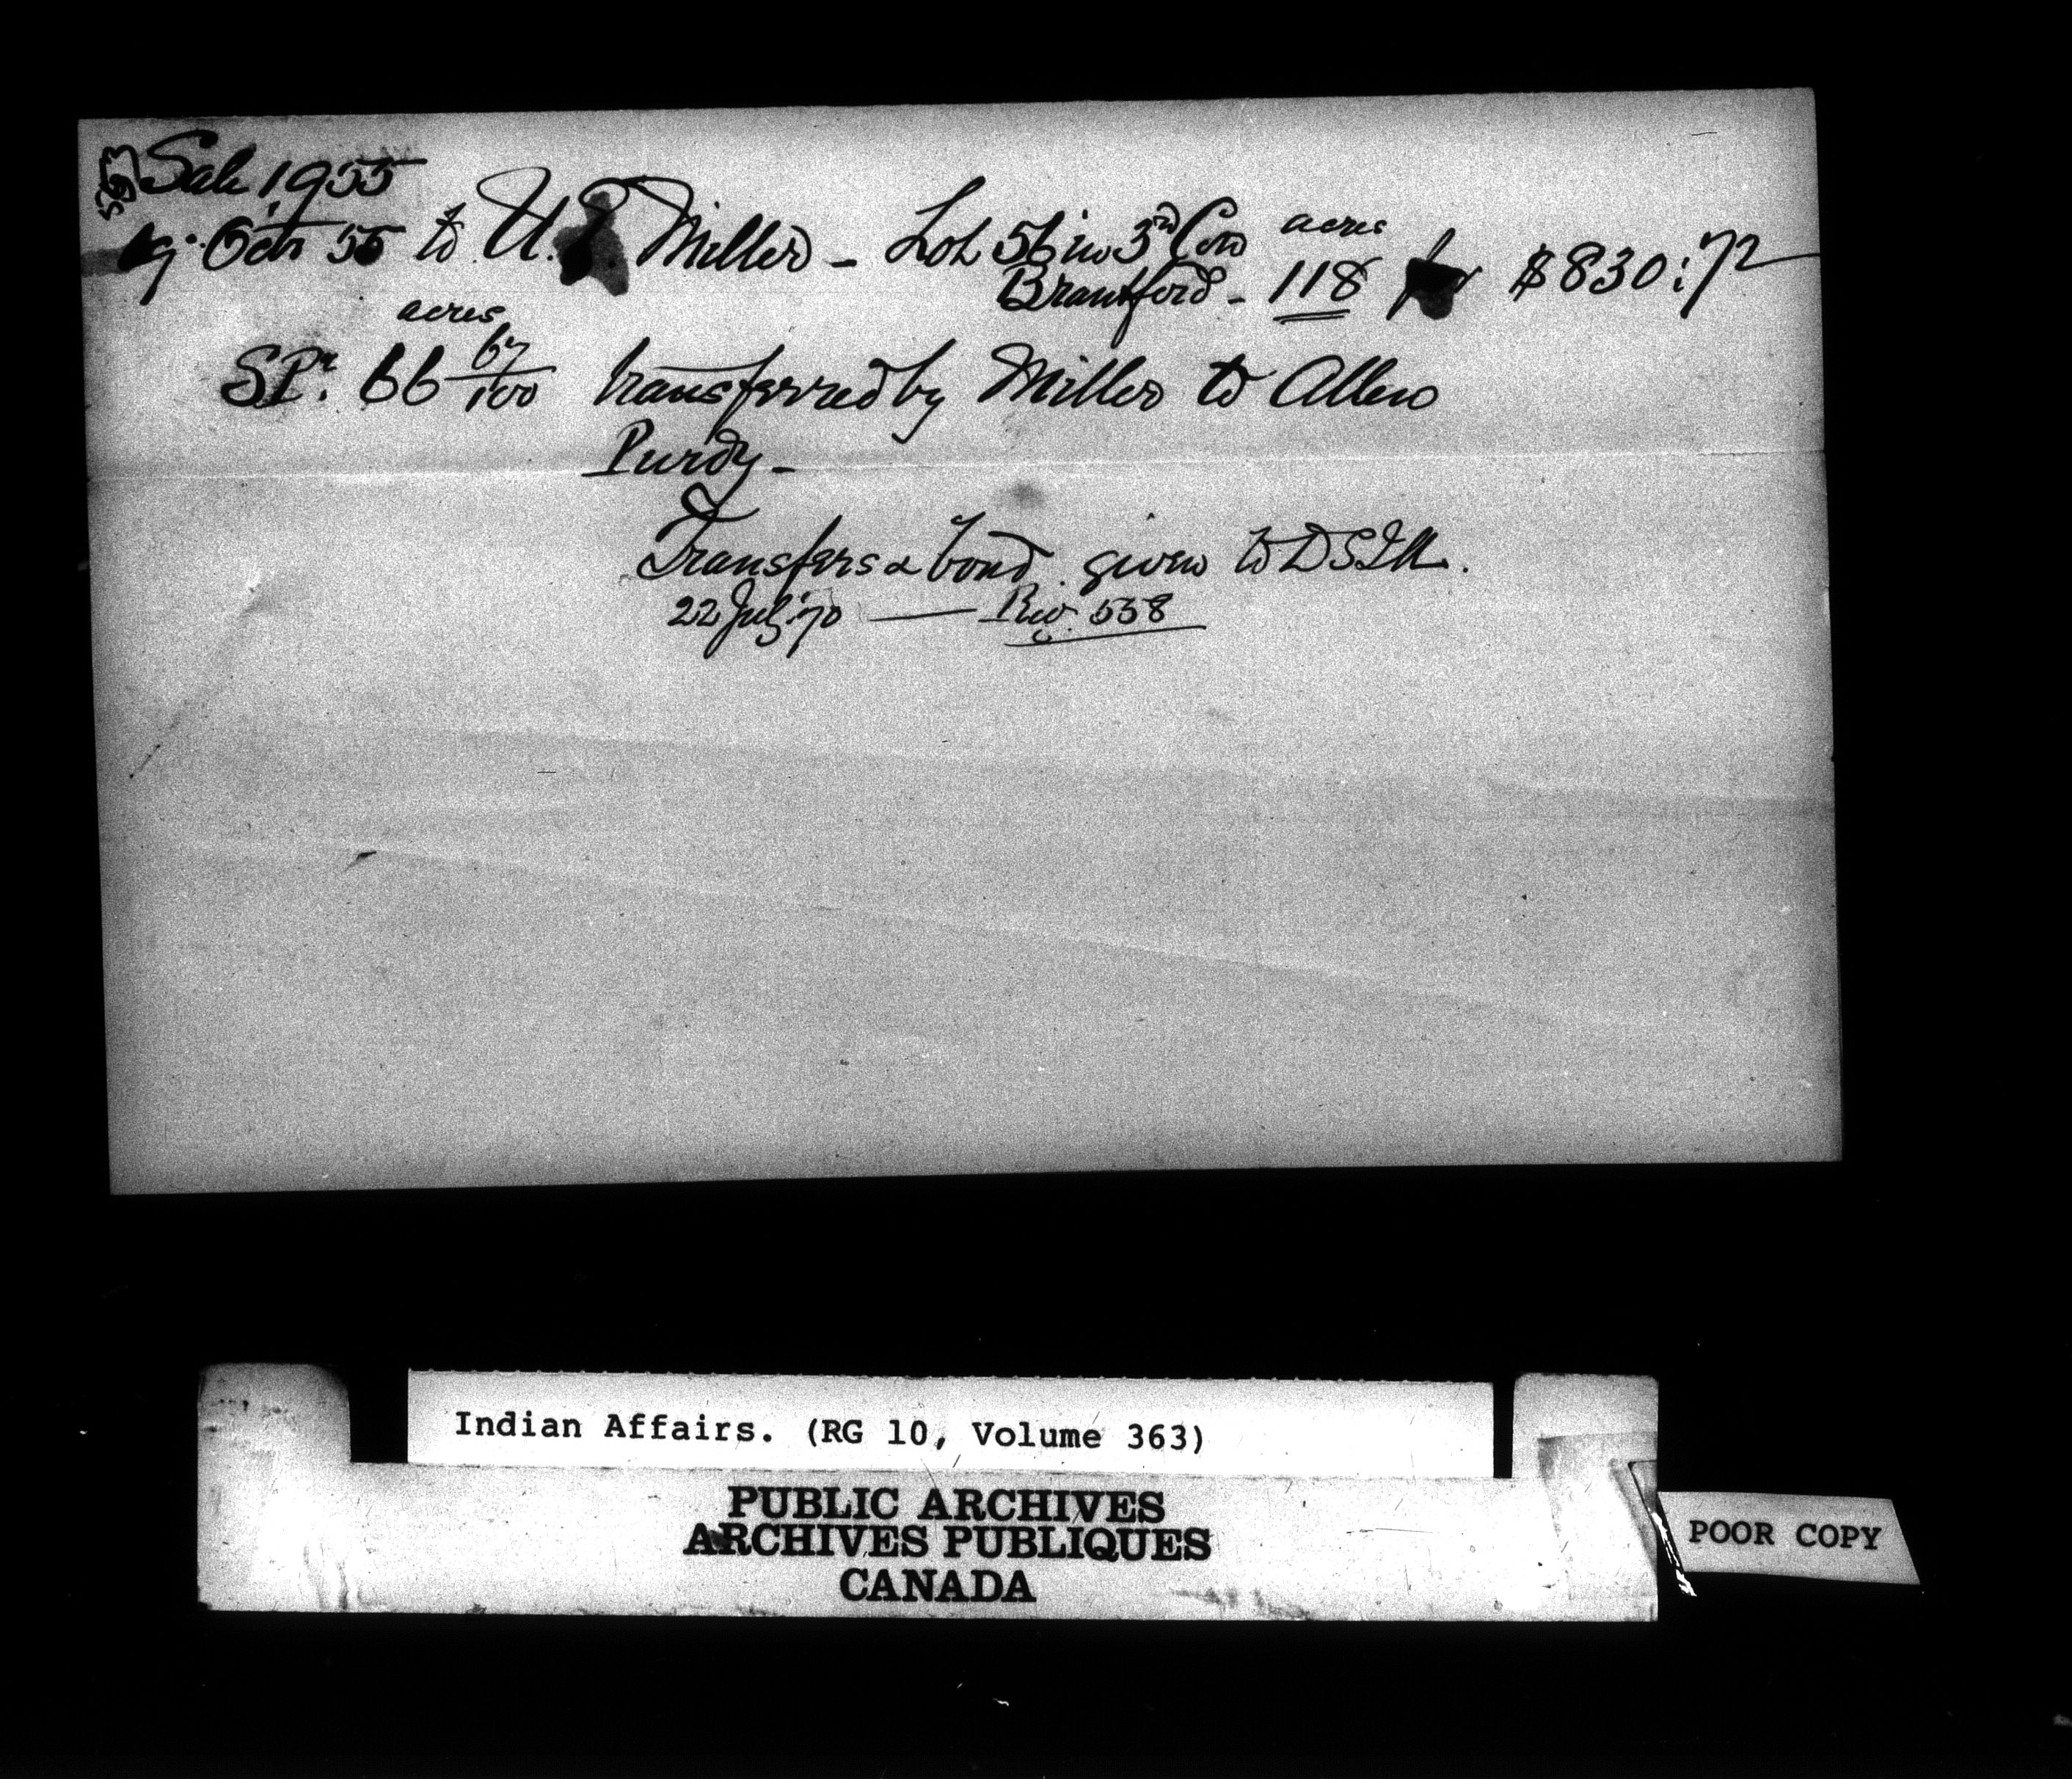 Sale 1955
19. Octr 55 to U. E Miller - Lot 56 in 3rd Con acres
Brantford - 118 for $830:72
acres
SPt. 66 67/100 transferred by Miller to Allen
Purdy -
Transfers & bond given to DSIA.
22 July '70 — 558
Indian Affairs. (RG 10, Volume 363)
PUBLIC ARCHIVES
ARCHIVES PUBLIQUES
CANADA
POOR COPY